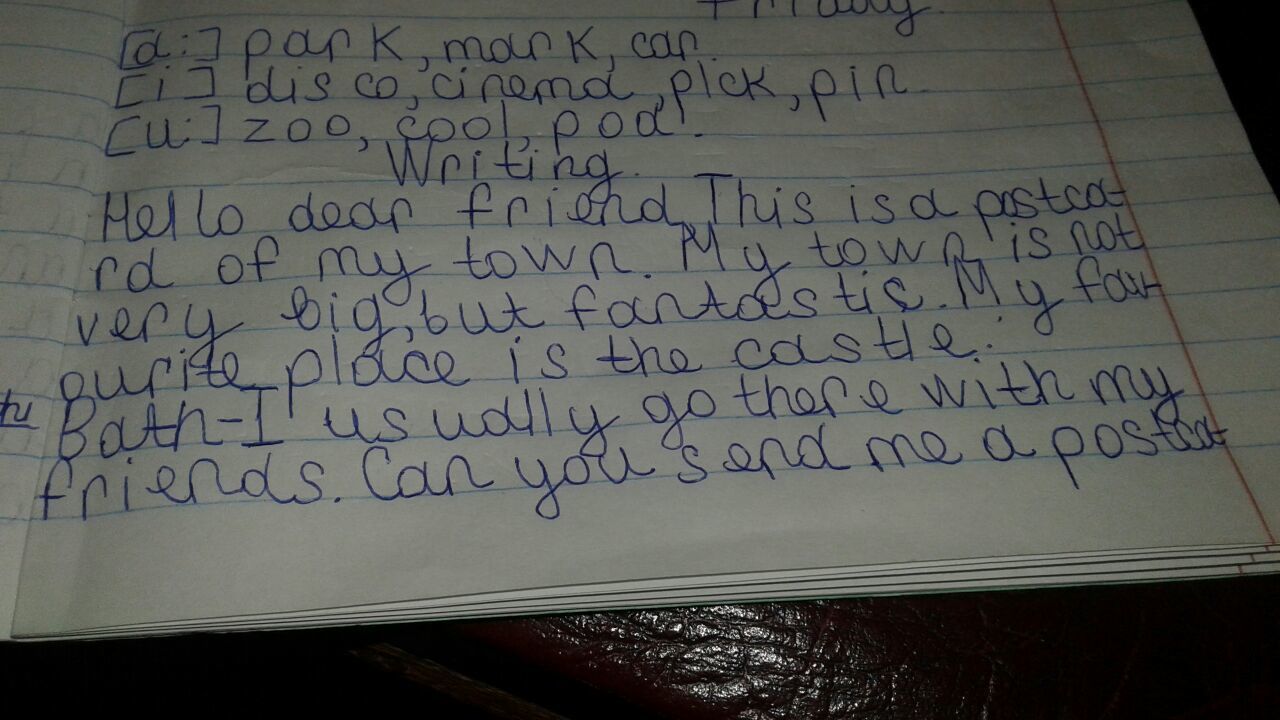 Friday.
[a:] park, mark, car.
[i] disco, cinema, pick, pin.
[u:] zoo, cool, pool.
Writing.
Hello dear friend, This is a postca-
rd of my town. My town is not
very big, but fantastic. My fav-
ourite place is the castle.
Bath-I usually go there with my
friends. Can you send me a postca-